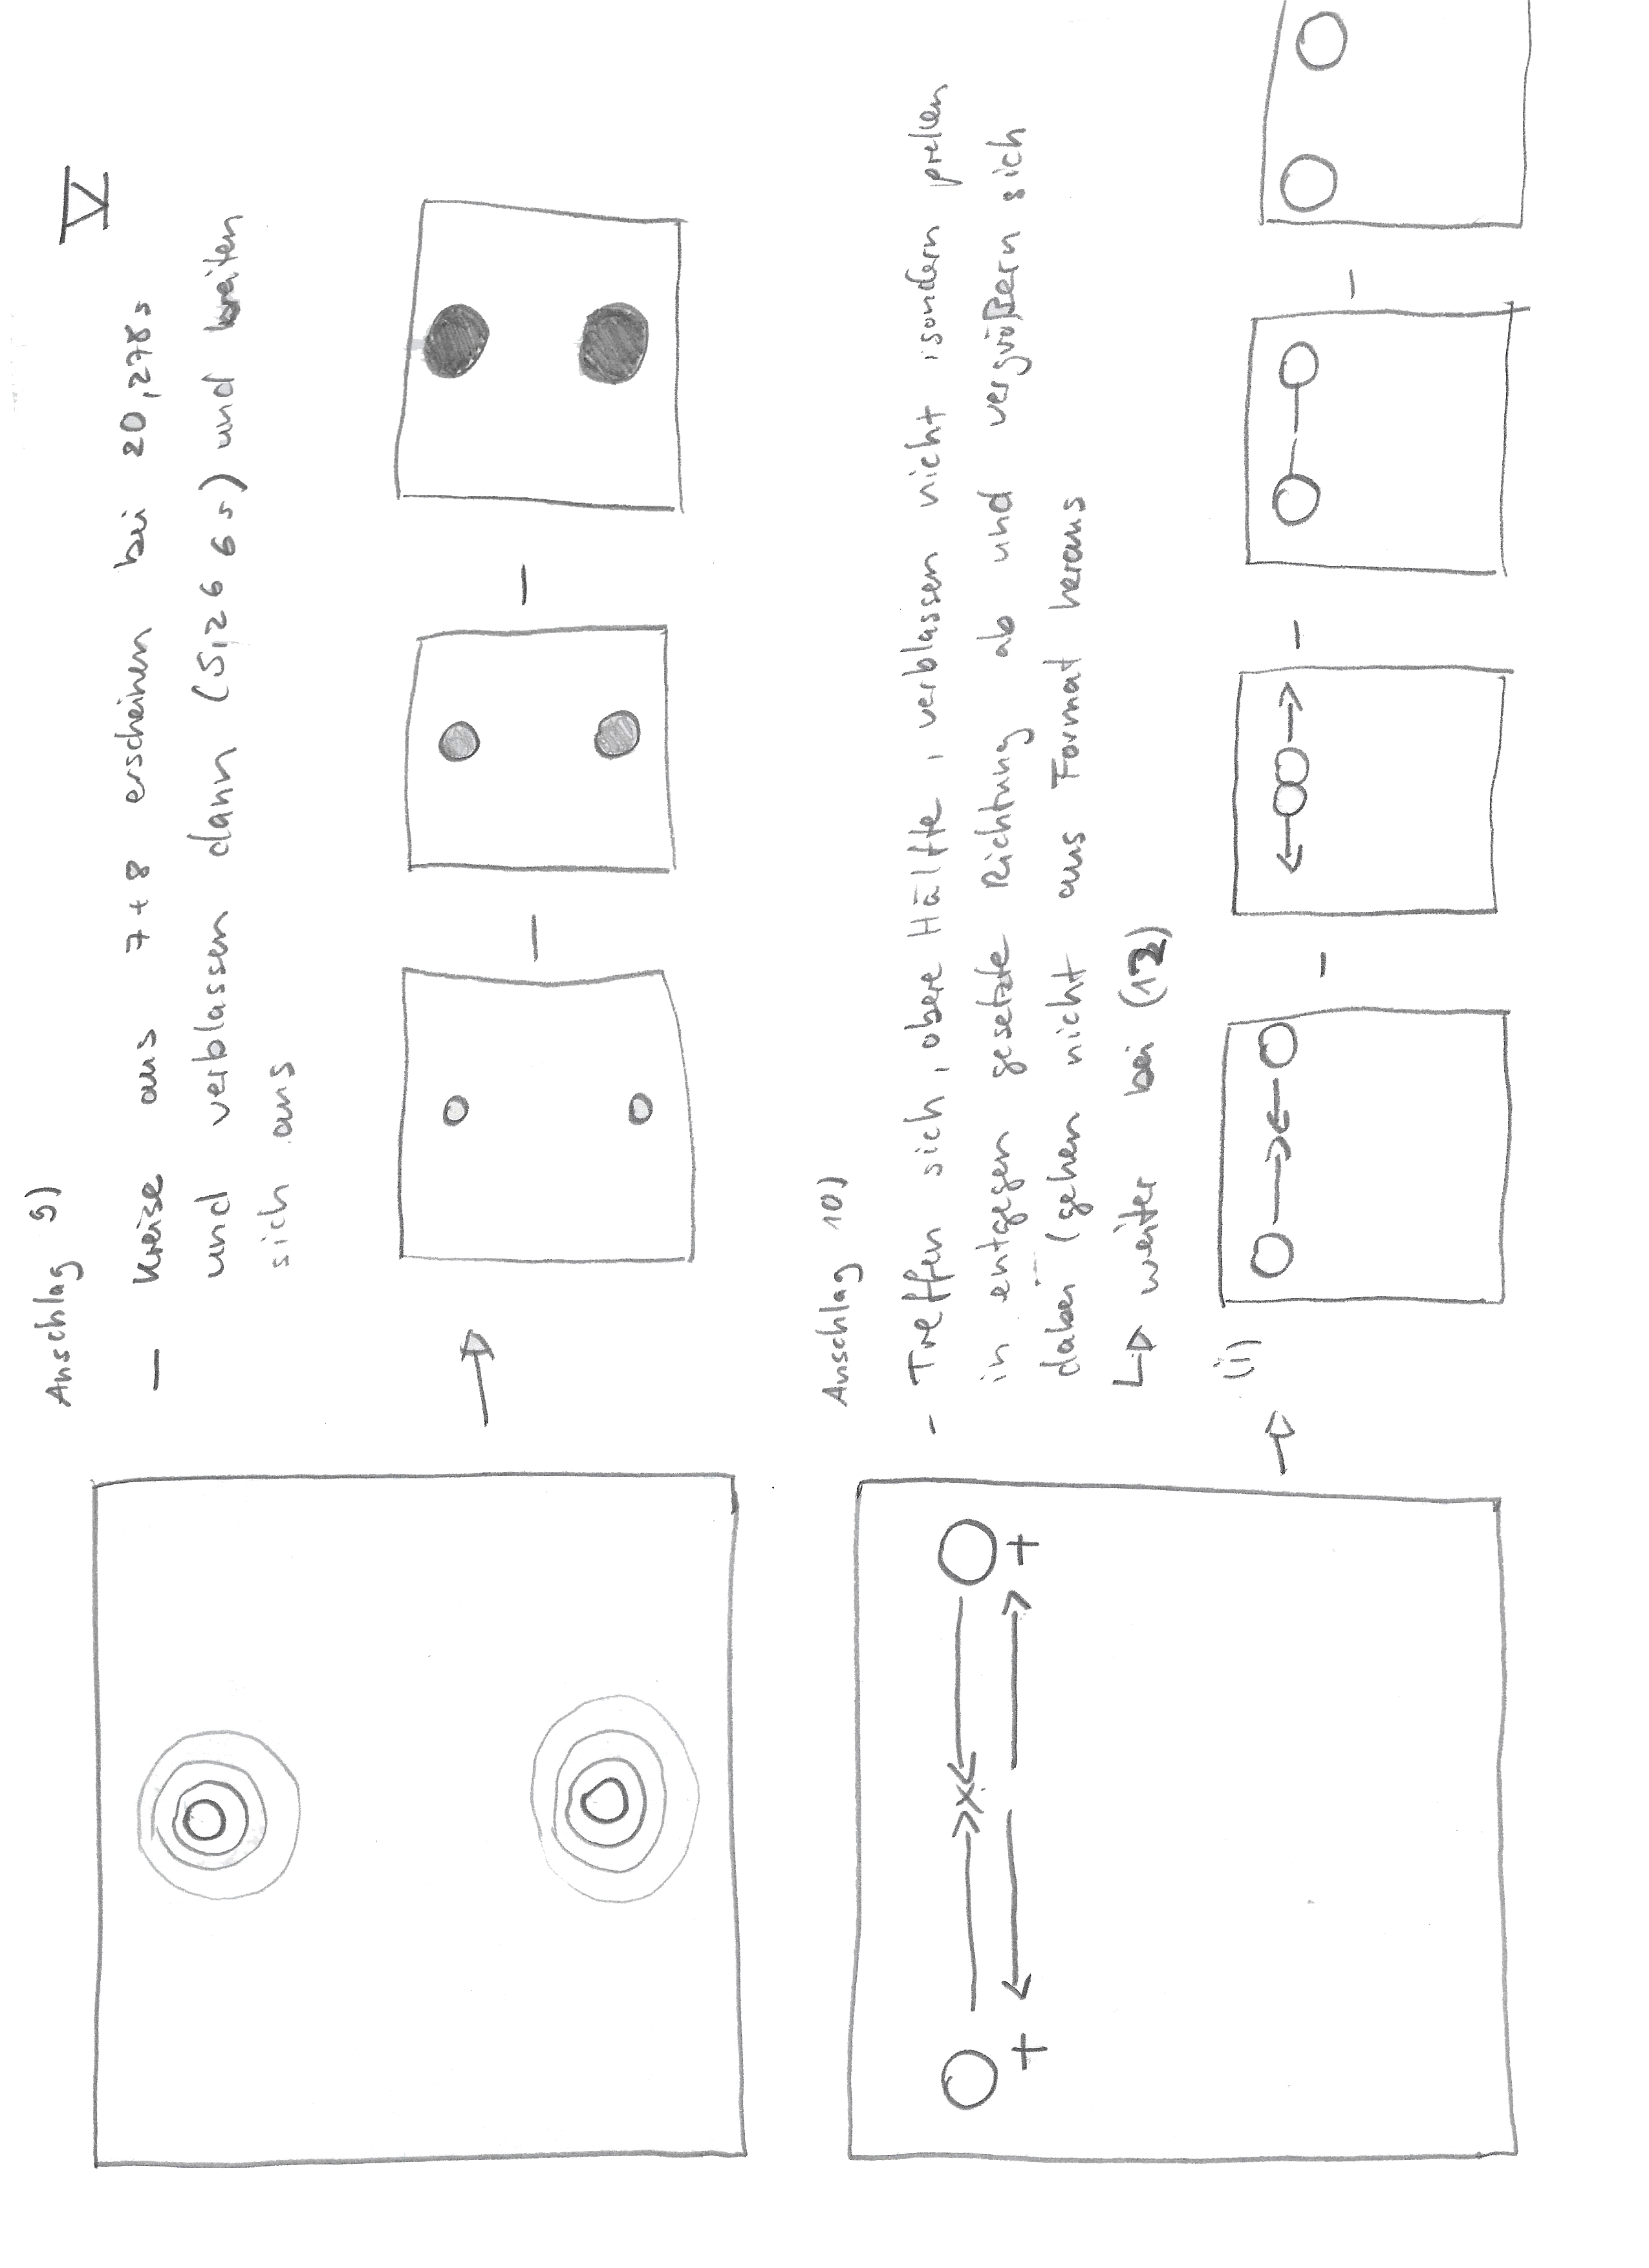 V
Anschlag 9)
– Kreise aus 7+8 erscheinen bei 20,278s
und verblassen dann (5,266s) und breiten
sich aus
Anschlag 10)
- Treffen sich, obere Hälfte, verblassen nicht sondern prellen
in entgegen gesetzte Richtung ab und vergrößern sich
dabei (gehen nicht aus Format heraus
↳ weiter bei (12)
(i)